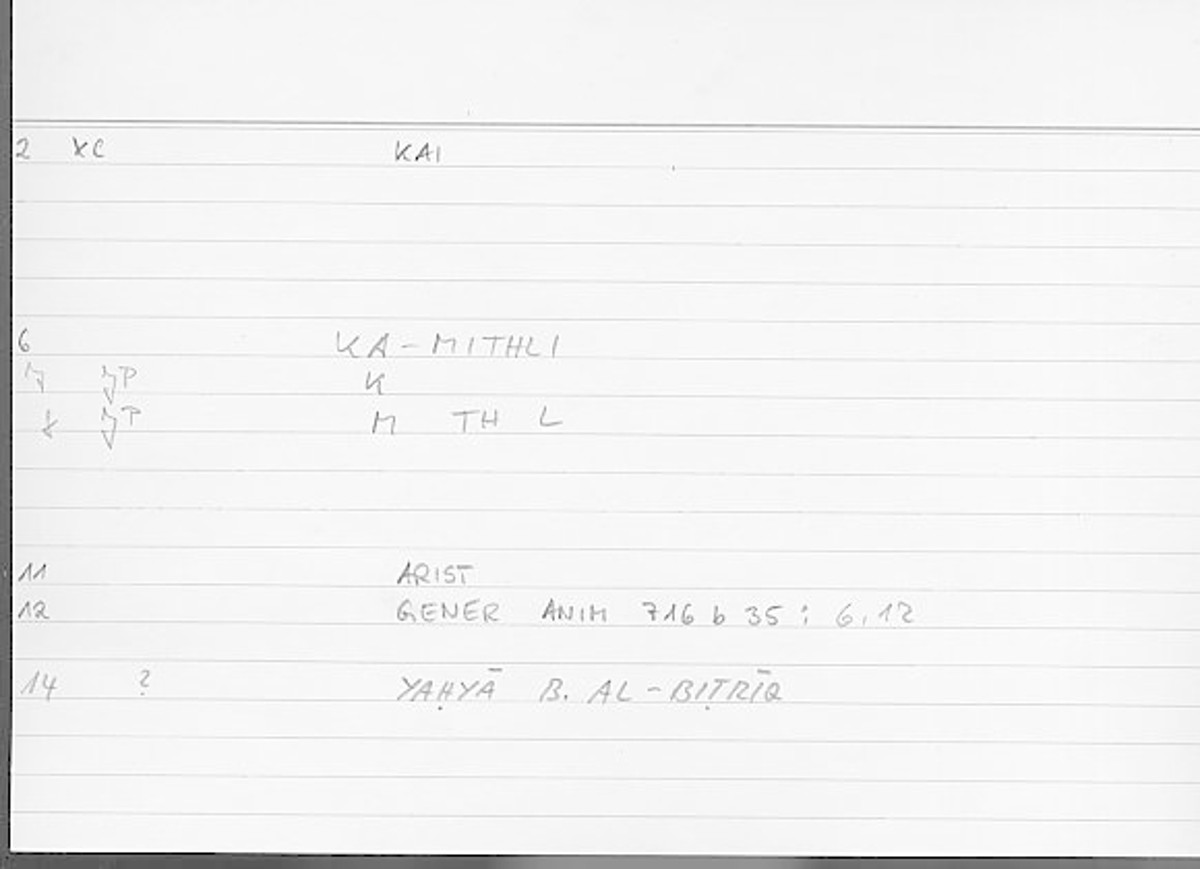 2 XC KAI
6 KA-MITHLI
K
M TH L
11 ARIST
12 GENER ANIM 716 b 35 : 6,12
14 ? YAḤYĀ B. AL-BIṬRĪQ